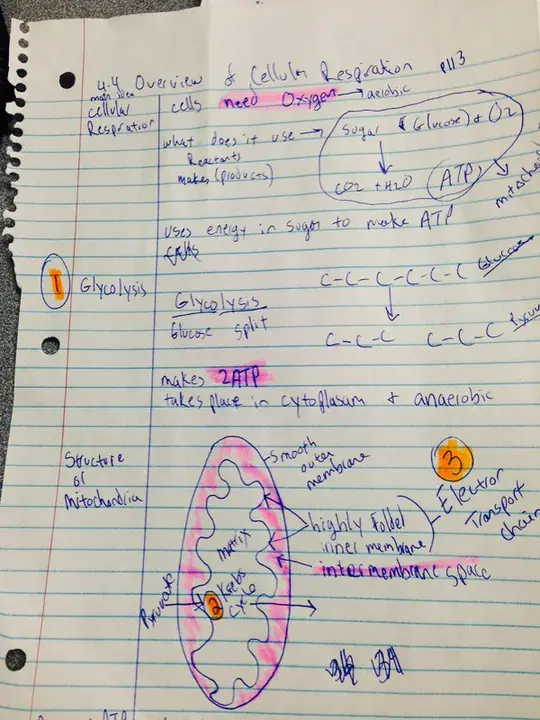 4.4 Overview of Cellular Respiration p113
main idea
cellular
Respiration
cells need Oxygen → aerobic
what does it use →
Reactants
makes (products)
Sugar (Glucose) + O2
CO2 + H2O ATP
uses energy in sugar to make ATP
1 Glycolysis
Glycolysis
Glucose split
C-C-C-C-C-C Glucose
C-C-C C-C-C
makes 2ATP
takes place in cytoplasum + anaerobic
Structure
of
Mitochondria
Smooth
outer
membrane
3
Electron
Transport
chain
highly folded
inner membrane
intermembrane space
matrix
Pyruvate
2
Krebs
cycle